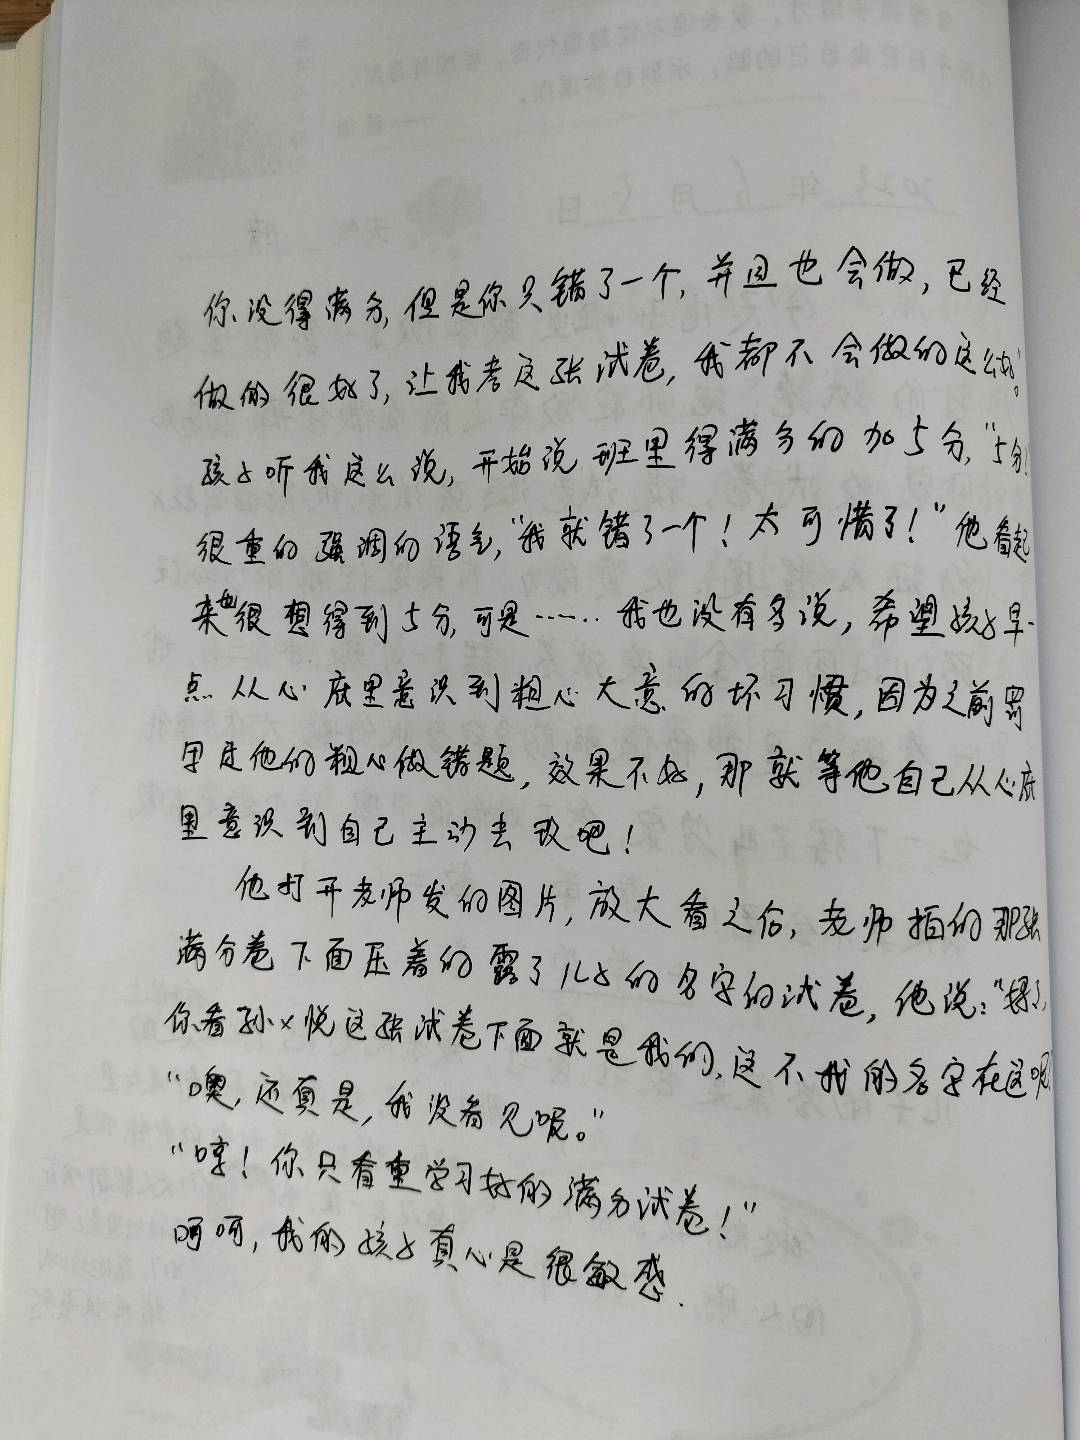 你没得满分,但是你只错了一个,并且也会做,已经
做的很好了,让我考这张试卷,我都不会做的这么好。"
孩子听我这么说,开始说班里得满分的加5分,"5分!
很重的强调的语气,"我就错了一个!太可惜了!"他看起
来也很想得到5分,可是……我也没有多说,希望孩子早
点从心底里意识到粗心大意的坏习惯,因为之前
他的粗心做错题,效果不好,那就等他自己从心底
里意识到自己主动去改吧!
他打开老师发的图片,放大看之后,老师拍的那张
满分卷下面压着的露了儿子的名字的试卷,他说:"
你看孙x悦这张试卷下面就是我的,这不我的名字在这呢"
"噢,还真是,我没看见呢。"
"哼!你只看重学习好的满分试卷!"
呵呵,我的孩子真心是很敏感.